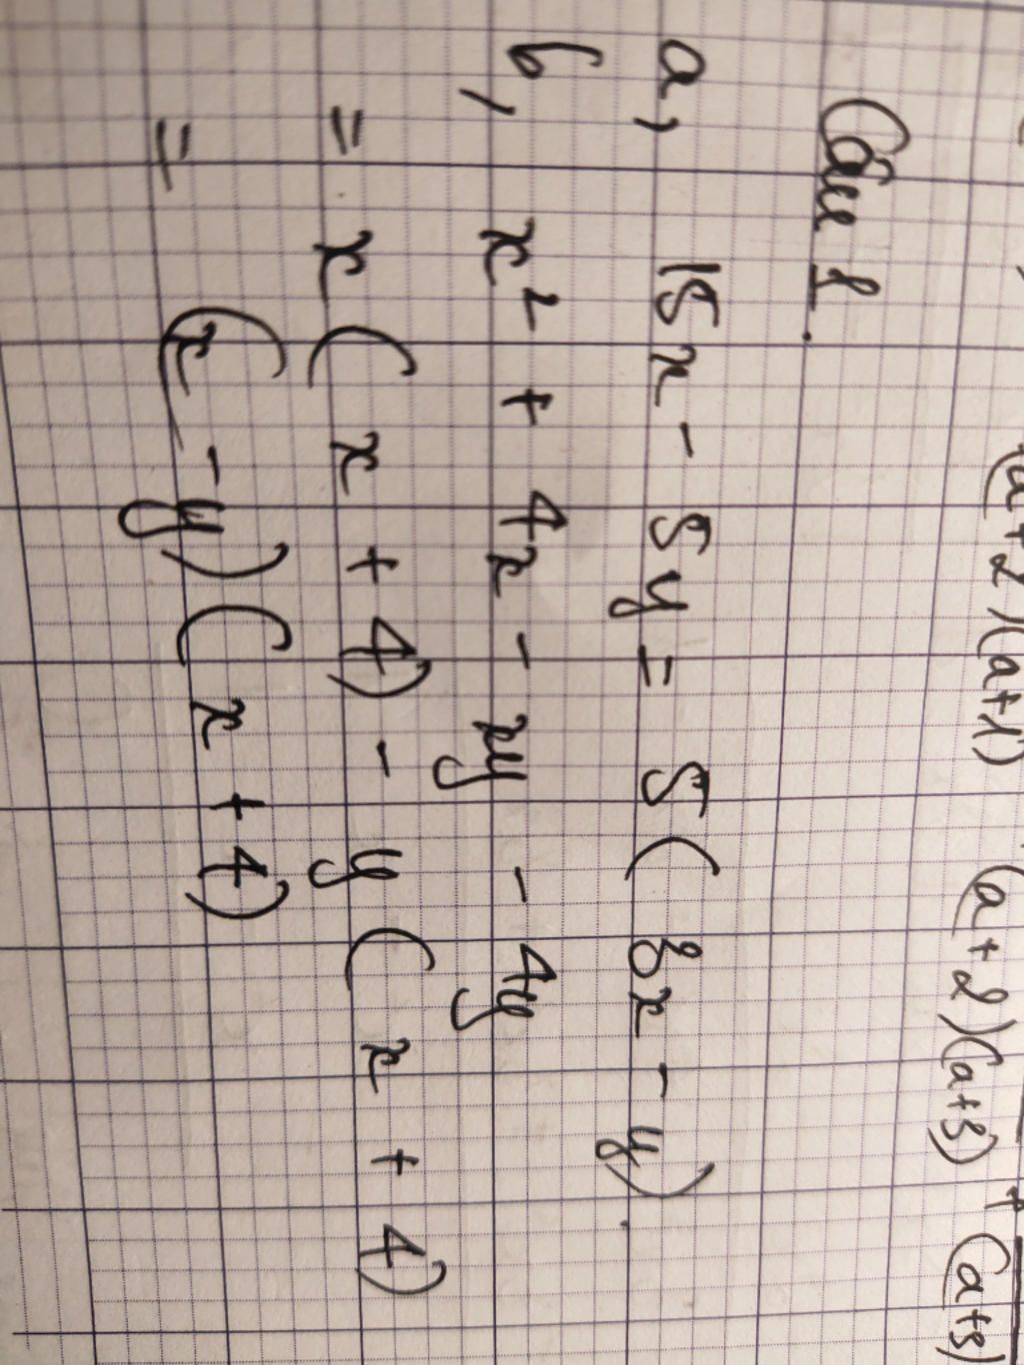 (a+2)(a+1) (a+2)(a+3) + (a+3)
Câu 1.
a, 15x - 5y = 5(3x - y).
b, x² + 4x - xy - 4y
= x(x + 4) - y(x + 4)
= (x - y)(x + 4)